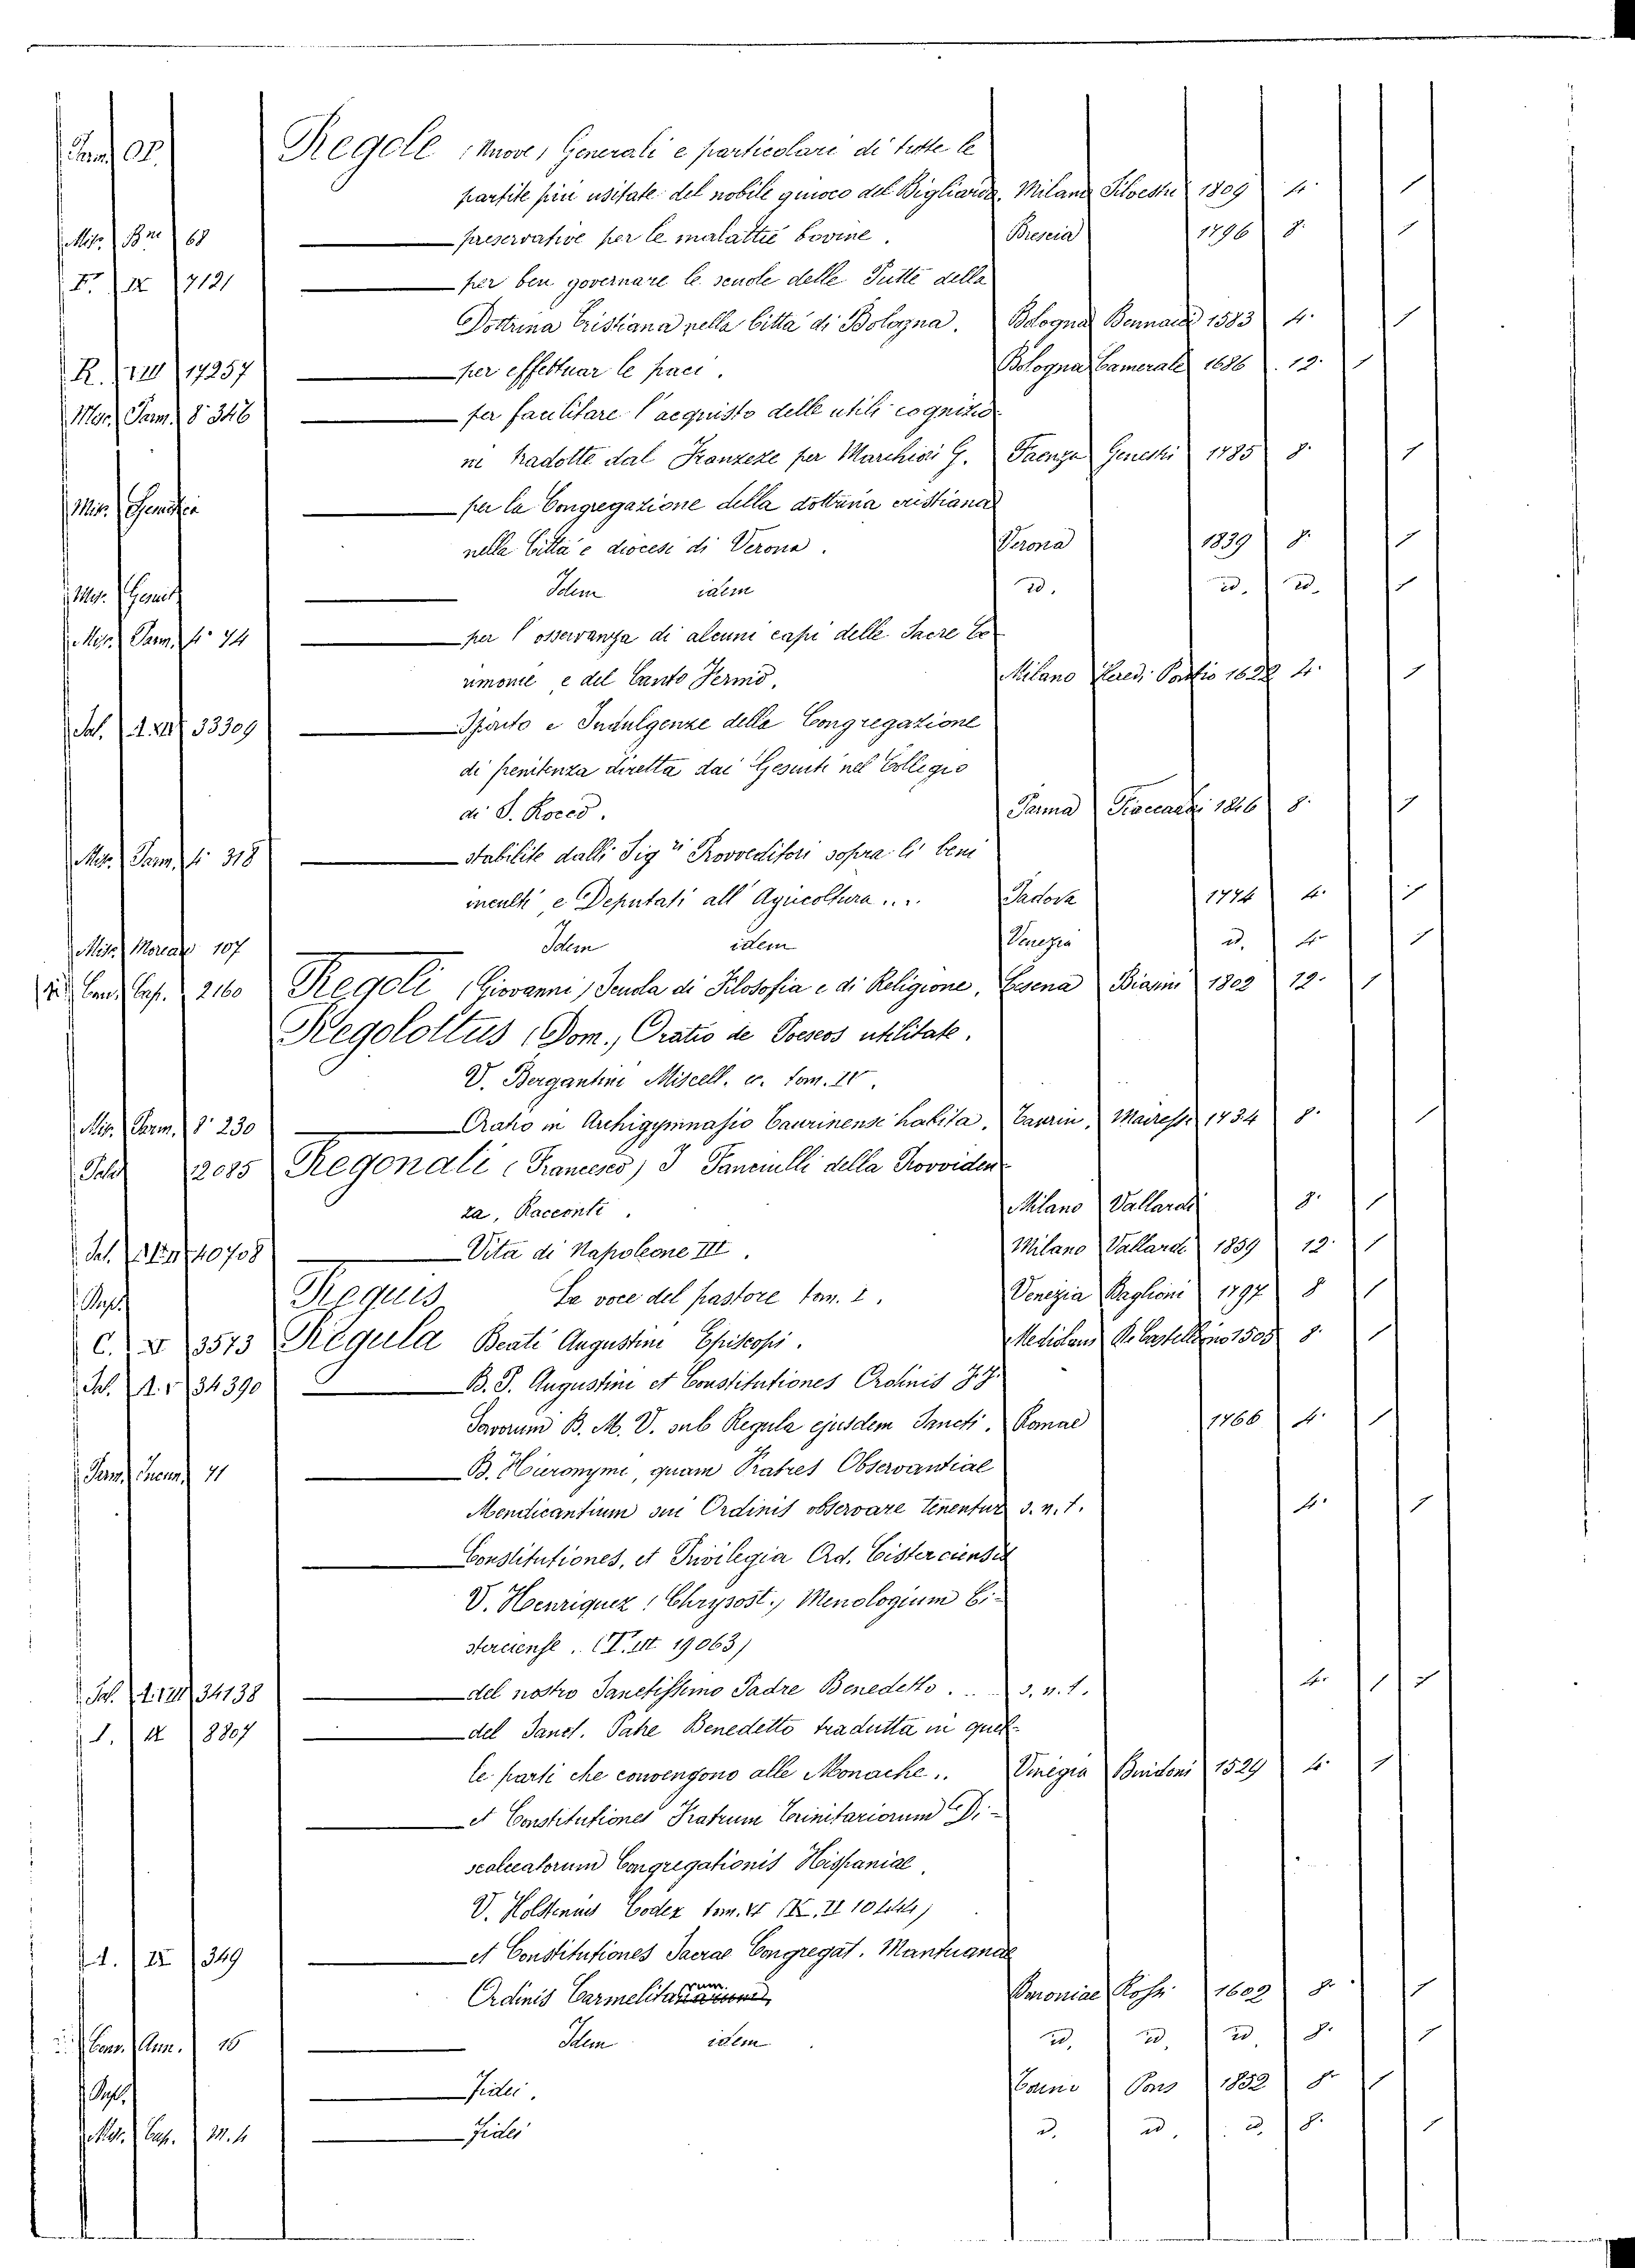 Regole (Nuove) Generali e particolari di tutte le
partite più usitate del nobile giuoco del Bigliardo. Milano Silvestri 1809 4. 1
Mis. Bre 68 preservative per le malattie bovine. Brescia 1796 8. 1
F. IX 7121 per ben governare le scuole delle Putte della
Dottrina Cristiana nella Città di Bologna. Bologna Bennacci 1583 4. 1
R. VIII 17257 per effettuar le paci. Bologna Camerale 1686 12. 1
Mor. Parm. 8° 346 per facilitare l'acquisto delle utili cognizio
ni tradotte dal Franzeze per Marchisi G. Faenza Genestri 1785 8. 1
per la Congregazione della dottrina cristiana
nella Città e diocesi di Verona. Verona 1839 8. 1
Idem idem id. id. id. 1
Mis. Parm. 4° 74 per l'osservanza di alcuni capi delle Sacre Ce
rimonie e del Canto Fermo. Milano Heredi Pontio 1622 4. 1
Sal. A. XII 33309 Spirito e Indulgenze della Congregazione
di penitenza diretta dai Gesuiti nel Collegio
di S. Rocco. Parma Fiaccadori 1846 8. 1
Mis. Parm. 4° 318 stabilite dalli Sigri Provveditori sopra li beni
inculti, e Deputati all'Agricoltura... Padova 1774 4. 1
Mis. Morcali 107 Idem idem Venezia id. 4. 1
Cen. Cap. 2160 Regoli (Giovanni) Scuola di Filosofia e di Religione. Cesena Biasini 1802 12. 1
Regolottus (Dom.) Oratio de Poeseos utilitate.
V. Bergantini Miscell. tom. IV.
Mis. Parm. 8° 230 Oratio in Archigymnasio Taurinensi habita. Taurin. Mairesse 1734 8. 1
12085 Regonati (Francesco) I Fanciulli della Provviden
za, Racconti. Milano Vallardi 8. 1
40708 Vita di Napoleone III. Milano Vallardi 1859 12. 1
Requis La voce del pastore tom. 2. Venezia Baglioni 1797 8 1
C. V 3573 Regula Beati Augustini Episcopi. Mediolani De Castelliono 1505 8. 1
Sal. A. V 34390 B. S. Augustini et Constitutiones Ordinis FF.
Servorum B. M. V. sub Regula ejusdem Sancti. Romae 1766 4. 1
Parm. Incun. 71 B. Hieronymi, quam Fratres Observantiae
Mendicantium sui Ordinis observare tenentur s. n. t. 4. 1
Constitutiones, et Privilegia Ord. Cisterciensis
V. Henriquez (Chrysost.) Menologium Ci-
sterciense. (T. III 19063)
Sal. A. VIII 34138 del nostro Sanctissimo Padre Benedetto... s. n. t. 4. 1 1
I. IX 8807 del Sanct. Patre Benedetto tradutta in quel-
le parti che convengono alle Monache.. Vinegia Bindoni 1529 4. 1
et Constitutiones Fratrum Trinitariorum Di-
scalceatorum Congregationis Hispaniae.
V. Holstenius Codex tom. VI (K. II 10444)
I. IX 349 et Constitutiones Sacrae Congregat. Mantuanae
Ordinis Carmelitarum. Bononiae Rossi 1602 8. 1
Cens. Ann. 16 Idem idem id. id. id. 8. 1
Fidei. Torino Pons 1852 8. 1
Mor. Cap. M. 4 Fidei id. id. id. 8. 1